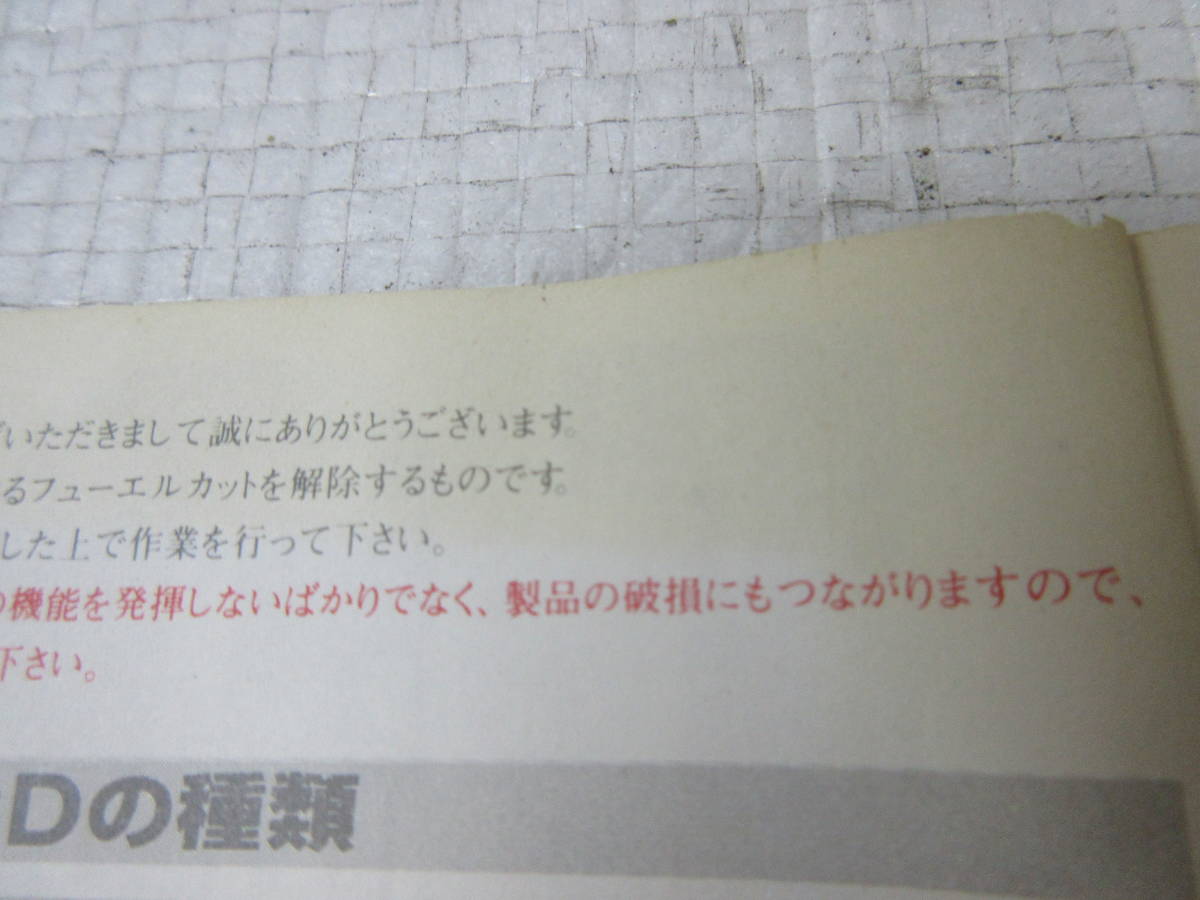 いただきまして誠にありがとうございます。
るフューエルカットを解除するものです。
した上で作業を行って下さい。
の機能を発揮しないばかりでなく、製品の破損にもつながりますので、
下さい。
Dの種類